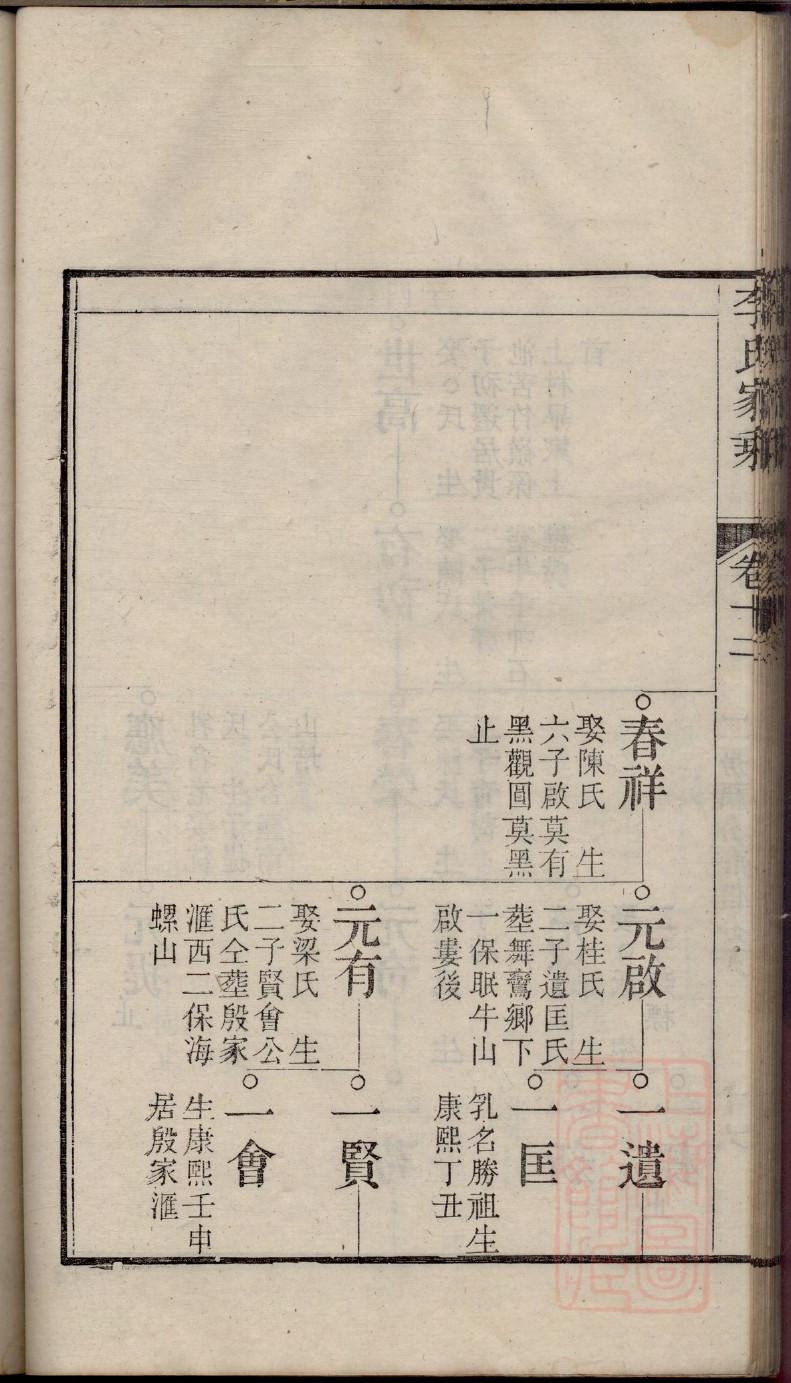 李氏家乘
卷十二
春祥
娶陳氏　生
六子啟莫有
黑觀圓莫黑
止
元啟
娶桂氏　生
二子遺匡氏
塟舞鸞鄉下
一保眠牛山
啟婁後
元有
娶梁氏　生
二子賢會公
氏仝塟殷家
滙西二保海
螺山
一遺
一匡
乳名勝祖生
康熙丁丑
一賢
一會
生康熙壬申
居殷家滙